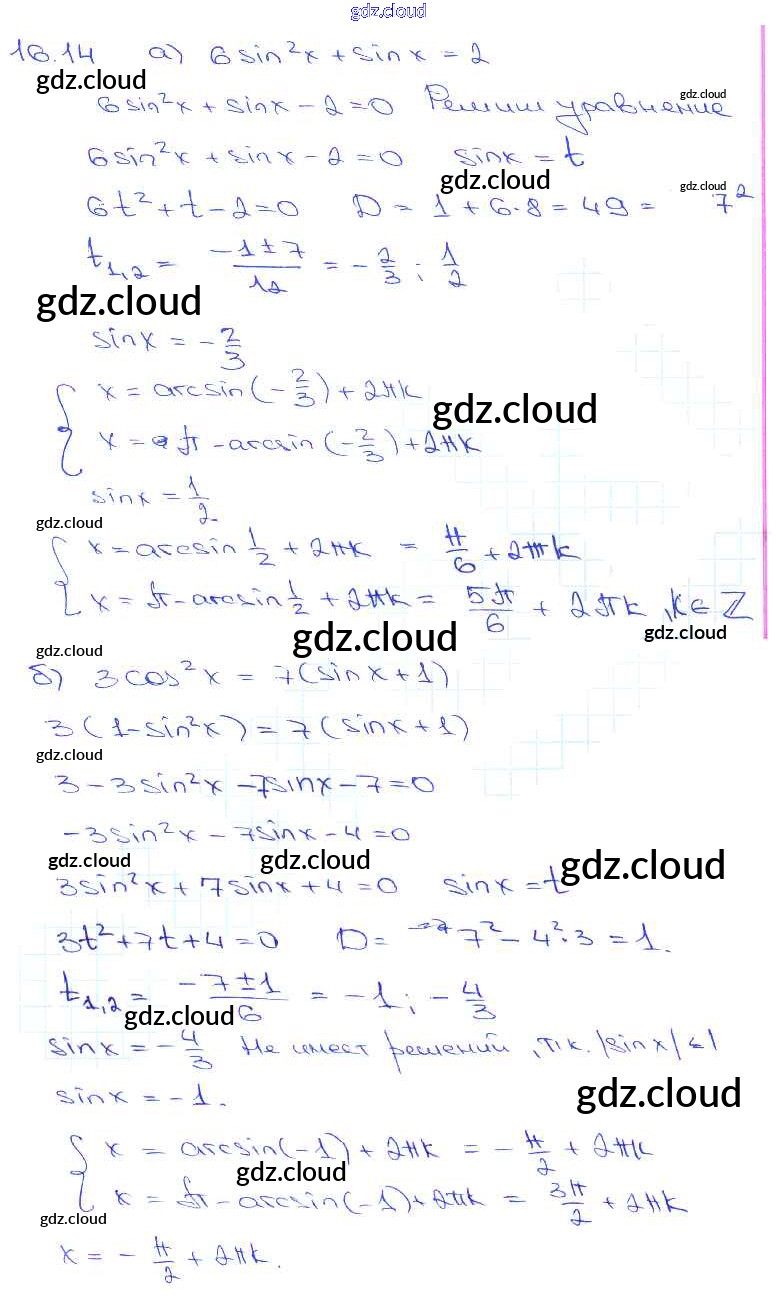 gdz.cloud
16.14 а) 6sin²x + sinx = 2
gdz.cloud
gdz.cloud
6sin²x + sinx - 2 = 0 Решим уравнение
6sin²x + sinx - 2 = 0 sinx = t
gdz.cloud
gdz.cloud
6t² + t - 2 = 0 D = 1 + 6·8 = 49 = 7²
t₁,₂ = (-1 ± 7)/12 = -2/3; 1/2
gdz.cloud
sinx = -2/3
x = arcsin(-2/3) + 2πk
gdz.cloud
x = π - arcsin(-2/3) + 2πk
sinx = 1/2
gdz.cloud
x = arcsin 1/2 + 2πk = π/6 + 2πk
x = π - arcsin 1/2 + 2πk = 5π/6 + 2πk, k ∈ Z
gdz.cloud
gdz.cloud
gdz.cloud
б) 3cos²x = 7(sinx + 1)
3(1 - sin²x) = 7(sinx + 1)
gdz.cloud
3 - 3sin²x - 7sinx - 7 = 0
-3sin²x - 7sinx - 4 = 0
gdz.cloud
gdz.cloud
gdz.cloud
3sin²x + 7sinx + 4 = 0 sinx = t
3t² + 7t + 4 = 0 D = 7² - 4²·3 = 1.
t₁,₂ = (-7 ± 1)/6 = -1; -4/3
gdz.cloud
sinx = -4/3 Не имеет решений, т.к. |sinx| ≤ 1
gdz.cloud
sinx = -1.
x = arcsin(-1) + 2πk = -π/2 + 2πk
gdz.cloud
x = π - arcsin(-1) + 2πk = 3π/2 + 2πk
gdz.cloud
x = -π/2 + 2πk.